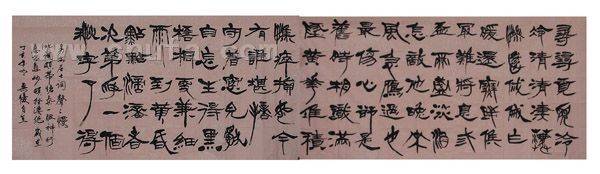 尋尋覓覓冷
冷清清凄凄
慘慘戚戚乍
暖還寒時候
最難將息三
杯兩盞淡酒
怎敵他晚來
風急雁過也
最傷心卻是
舊時相識滿
地黃花堆積
憔悴損如今
有誰堪摘
守著窗兒獨
自怎生得黑
梧桐更兼細
雨到黃昏
點點滴滴這
次第怎一個
愁字了得
易安居士詞 聲聲慢